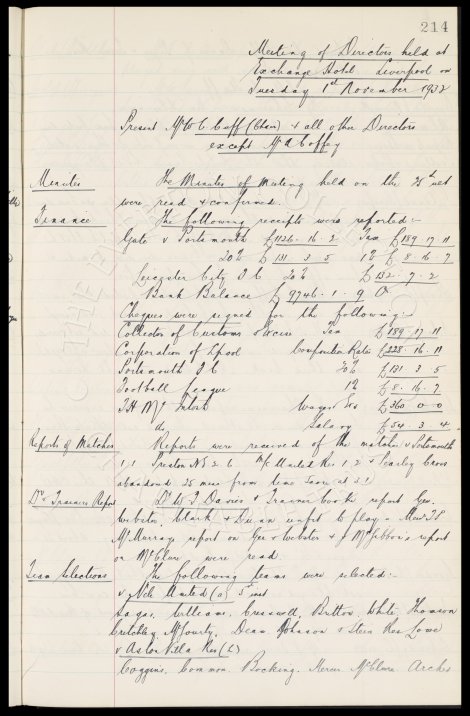 214
Meeting of Directors held at
Exchange Hotel Liverpool on
Tuesday 1st November 1932
Present Mr W C Cuff (Chair) & all other Directors
except Mr A Coffey
Minutes The Minutes of meeting held on the 25th ult
were read & confirmed.
Finance The following receipts were reported:-
Gate v Portsmouth £1126. 16. 2 Tax £189. 17. 11
20% £131 3 5 1% £8. 16. 7
Leicester City F C 20% £132. 7. 2
Bank Balance £9746. 1. 9
Cheques were signed for the following:-
Collector of Customs & Excise Tax £189. 17. 11
Corporation of Lpool Composition Rates £228. 16. 11
Portsmouth F C 20% £131 3 5
Football League 1% £8. 16. 7
T H McIntosh Wages &c £360 0 0
do Salary £54. 3. 4
Reports of Matches Reports were received of the matches v Portsmouth
1/1 Preston N E 2. 6 M/c United Res 1. 2 & Scarley Cross
abandoned 25 mins from time
Dr & Trainers Report Dr W J Davies & Trainer Cooke report Gee,
Webster, Clark & Dunn unfit to play - Mr
McMurray report on Gee & Webster & J McGibbon's report
on McClure were read.
Team Selections The following teams were selected:-
v Newc United (a) 5th inst
Sagar, Williams, Cresswell, Britton, White, Thomson
Critchley, McGourty, Dean, Johnson & Stein Res Lowe
v Aston Villa Res (L)
Coggins, Common, Bocking, Mercer McClure Archer